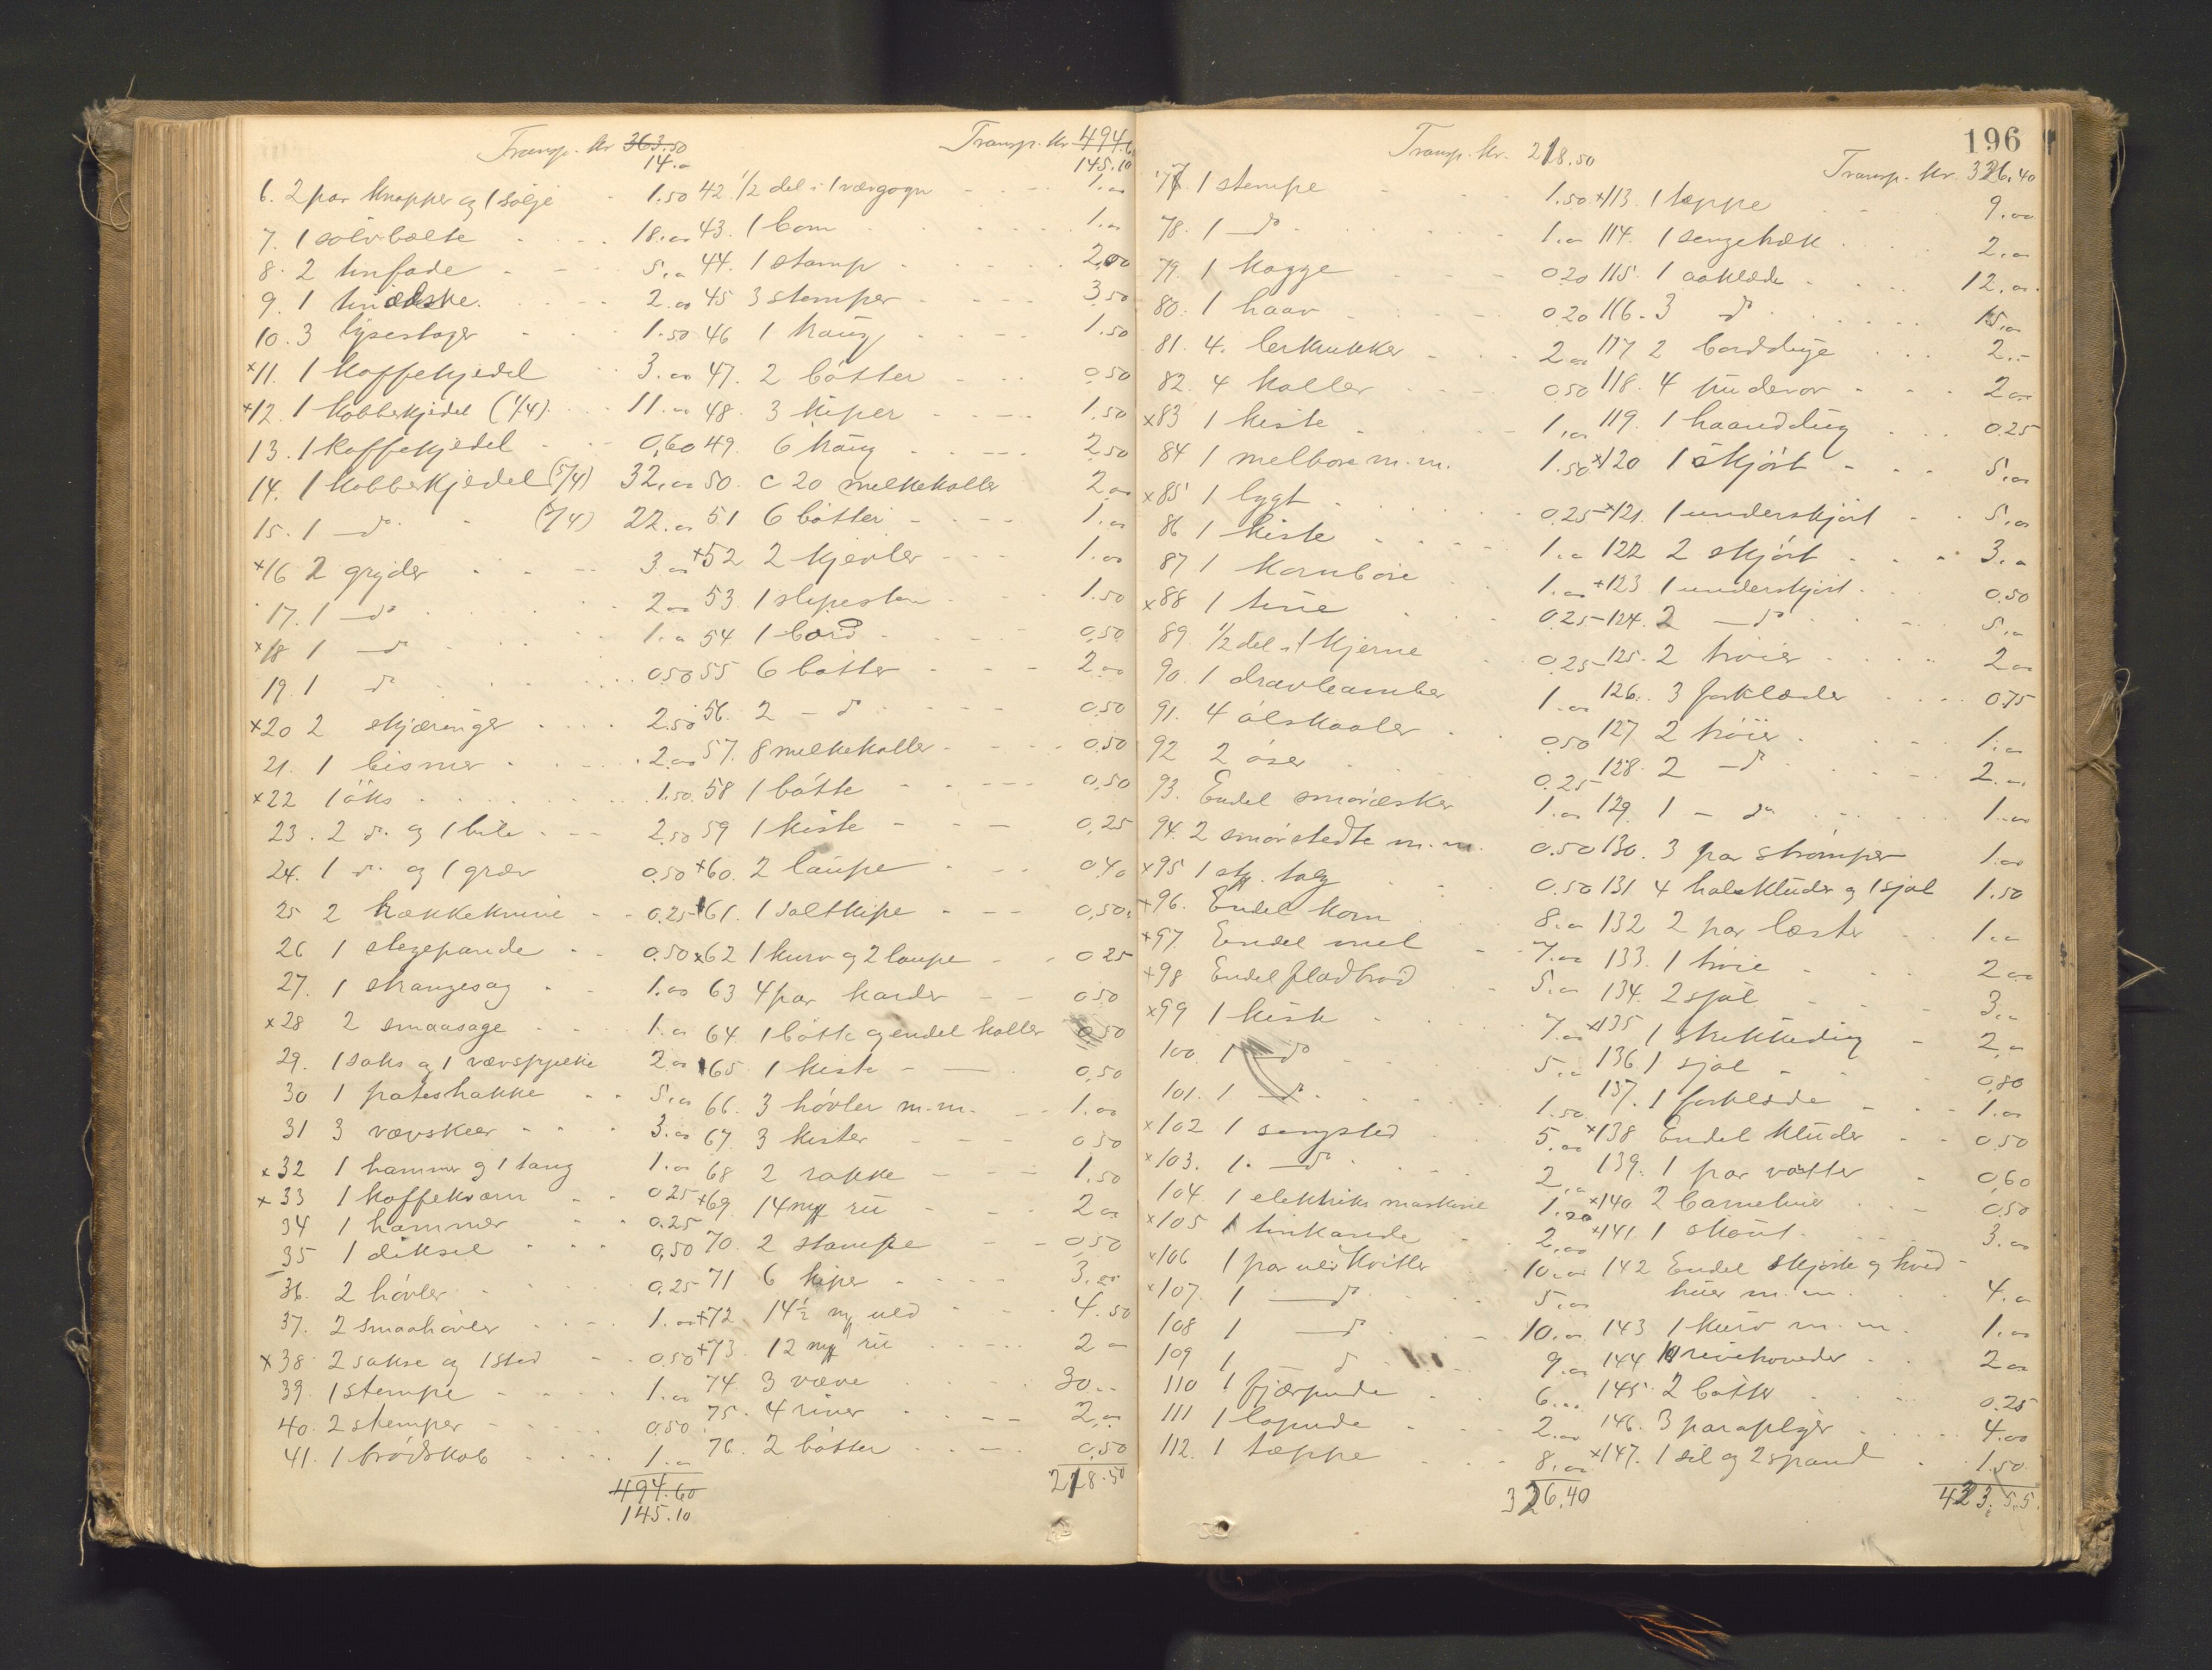 Transp. Kr 363.50
14.00
6. 2 par Knapper og 1 sölje 1.50
7. 1 sölvbælte 18.00
8. 2 tinfade 5.00
9. 1 tindæske. 2.00
10. 3 lysestager 1.50
x11. 1 Kaffekjedel 3.00
x12. 1 Kobbekjedel (1/4) 11.00
13. 1 Kaffekjedel 0,60
14. 1 Kobbekjedel (5/4) 32,00
15. 1 — do (3/4) 22.00
x16 2 gryder 3.00
17. 1 — do 2.00
x18 1 — do 1.00
19. 1 do 0.50
x20 2 skjæringer 2.50
21. 1 bismer 2.00
x22 1 öks 1.50
23. 2 do. og 1 bile 2.50
24. 1 do. og 1 græv 0.50
25 2 hækkeknive 0.25
26 1 stegepande 0.50
27. 1 strangesag 1.00
x28 2 smaasage 1.00
29. 1 saks og 1 vævspjelke 2.00
30 1 poteshakke 5.00
31 3 vævskeer 3.00
x32 1 hammer og 1 tang 1.00
x33 1 Kaffekværn 0.25
34 1 hammer 0.25
35 1 diksel 0,50
36. 2 hövler 0.25
37. 2 smaahövler 1.00
x38 2 sakse og 1 sted 0.50
39. 1 stempe 1.00
40. 2 stemper 0,50
41. 1 brödskab 1.00
494.60
145.10
Transp. Kr 494.6
145.10
42. 1/2 del i 1 værgogn 1.00
43. 1 bom 1.00
44. 1 stamp 2,00
45 3 stemper 3.50
46 1 traug 1.50
47. 2 bötter 0.50
48. 3 kiper 1.50
49. 6 traug 2.50
50. c 20 melkekoller 2.00
51 6 bötter 1.00
+52 2 kjevler 1.00
53. 1 slipesten 1.50
54. 1 bord 0,50
55 6 bötter 2.00
56. 2 — do 0.50
57. 8 melkekoller 0,50
58 1 bötte 0,50
59 1 kiste 0,25
+60. 2 laupe 0.40
61. 1 saltkipe 0,50
x62 1 kurv og 2 laupe 0 25
63 4 par karder 0.50
64. 1 bötte og endel koller 0.50
65. 1 kiste 0,50
66. 3 hövler m.m. 1.00
67. 3 kister 0.50
68 2 rokke 1.50
+69. 14 mk ru 2.00
70. 2 stampe 0.50
71 6 kiper 3.00
+72 14 1/2 mk uld 4.50
+73. 12 mk ru 2 —
74 3 væve 30.—
75. 4 river 2.00
76. 2 bötter 0.50
218.50
196
Transp. Kr. 218.50
77. 1 stempe 1.50
78. 1 — do 1.00
79. 1 kagge 0.20
80. 1 haav 0.20
81. 4. lerkrukker 2.00
82. 4 koller 0.50
x83 1 kiste 1.00
84 1 melbore m.m. 1.50
x85 1 lygt 0.25
86 1 kiste 1.00
87 1 Kornbore 1.00
x88 1 tine 0.25
89. 1/2 del i 1 Kjerne 0.25
90. 1 dravleamber 1.00
91. 4 ölskaaler 0.50
92 2 öser 0.25
93. Endel smöræsker 1.00
94. 2 smörstedte m.m. 0.50
x95 1 stk. talg 0.50
+96. Endel Korn 8.00
+97 Endel mel 7.00
+98 Endel fladbröd 5.00
x99 1 kiste 7.00
100. 1 — do 5.00
101. 1 — do 1.50
x102 1 sengsted 5.00
x103. 1. — do 2.00
104. 1 elektrisk maskine 1.20
x105 1 tinkande 2.00
x106 1 par uldkvitler 10.00
x107. 1 — do 5.00
108 1 — do 10.00
109 1 do 9.00
110 1 fjærpude 6.00
111 1 lopude 2.00
112. 1 tæppe 8.00
326.40
Transp. Kr. 326.40
x113. 1 tæppe 9.00
114. 1 sengetræk 2.00
115. 1 aaklæde 12.00
116. 3 do 15.00
117 2 borddúge 2.—
118. 4 púdevar 2.00
119. 1 haanddúg 0.25
x120 1 skjört 5.00
x121. 1 underskjört 5.00
122 2 skjört 3.00
+123 1 underskjört 0.50
124. 2 — do 5.00
125. 2 tröier 2.00
126. 3 forklæder 0.75
127 2 tröier 1.00
128. 2 — do 2.00
129. 1 — do 1.00
130. 3 par strömper 1.00
131 4 halsklúder og 1 sjal 1.50
132 2 par læster 1.00
133. 1 tröie 2.00
134. 2 sjal 3.00
x135 1 strikkedúg 2.00
136 1 sjal 0,80
137. 1 forklæde 1.00
x138 Endel klúder 0.50
139. 1 par vötter 0,60
x140 2 barnehuer 0.50
x141. 1 skaut 3.00
142 Endel skjorte og hvid-
húer m.m. 4.00
143 1 kurv m.m. 1.00
144 10 rivehoveder 2.00
145. 2 bötter 0.25
146. 3 paraplyer 4.00
x147. 1 sil og 2 spand 1.50
423.55.